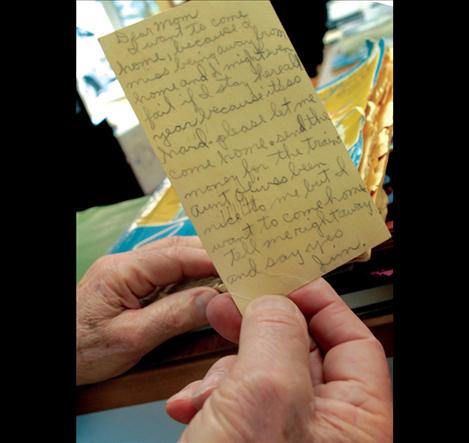 Dear Mom
I want to come
home, because I
miss being away from
home and I might even
fail if I stay here all
year because it's so
hard. please let me
come home. send the
money for the train
Aunt Olives been
nice to me but I
want to come home
tell me right away
and say yes
Jim.